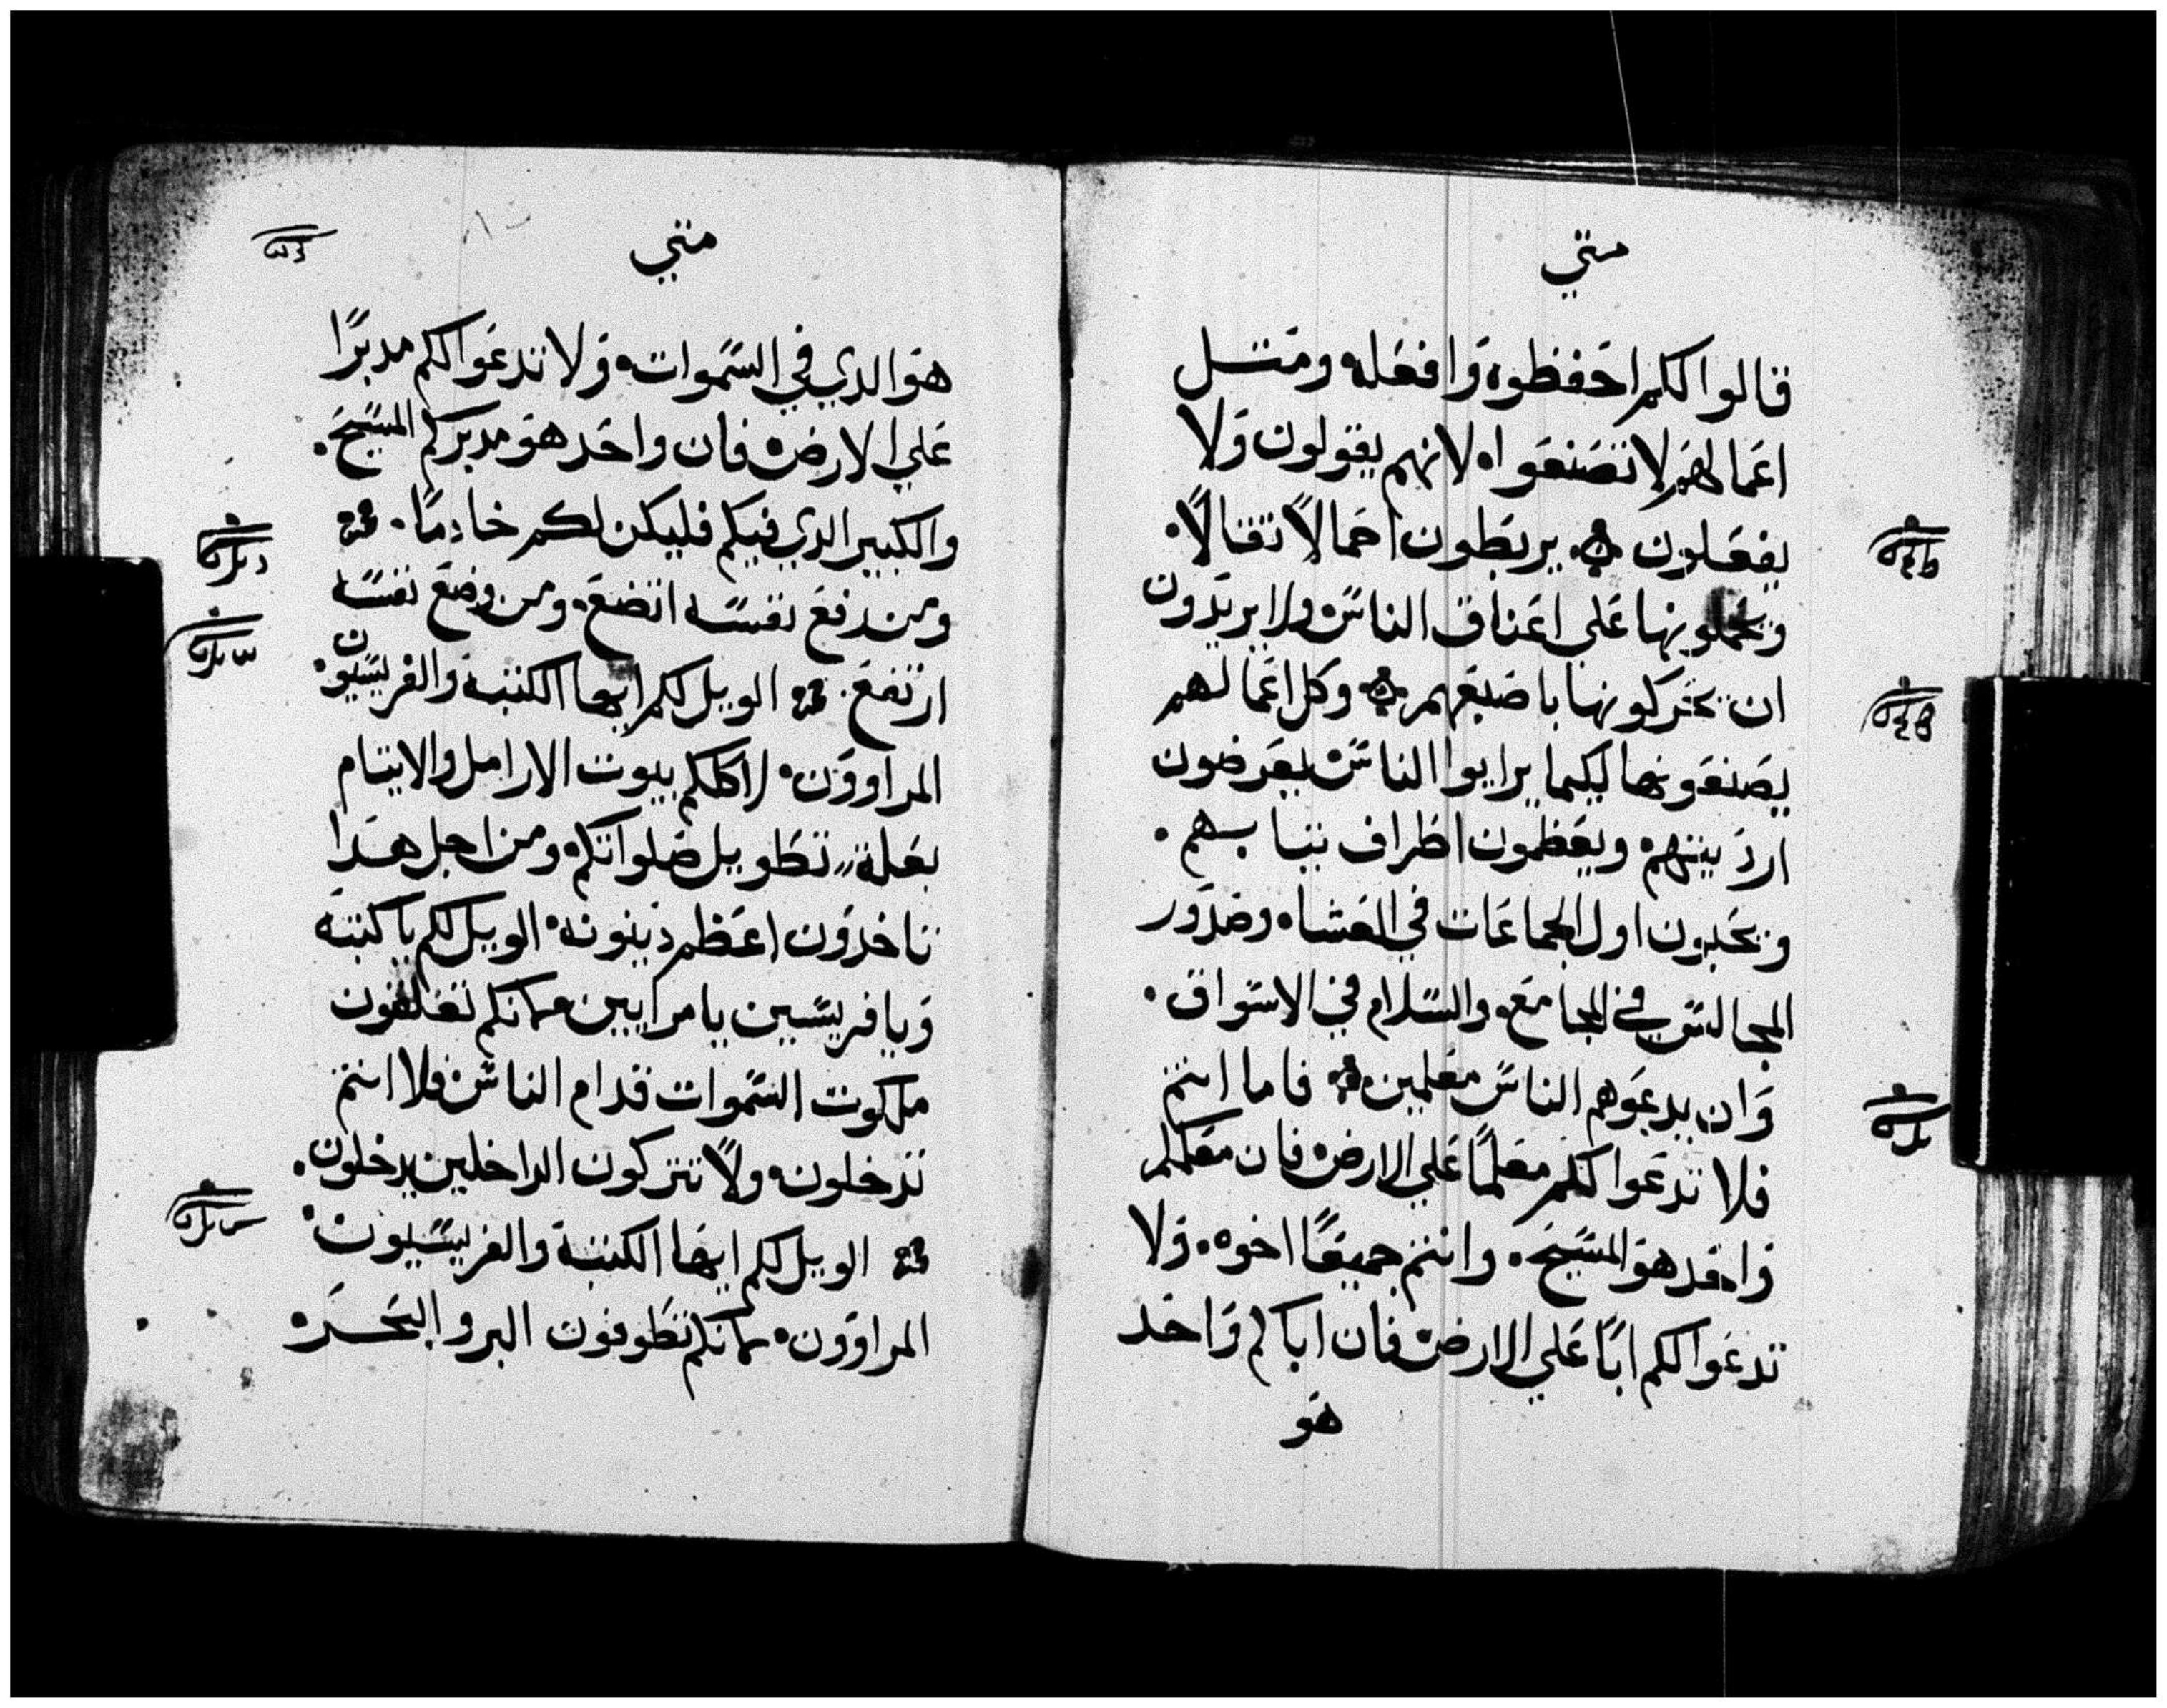 متي
قالوا لكم احفظوه وافعله ومتل
اعمالهم لا تصنعوا ه لانهم يقولون ولا
يفعلون يربطون احمالاً تقالاً
ويحملونها علي اعناق الناس ولا يريدون
ان يحركونها باصبعهم وكل اعمالهم
يصنعونها ليكما يرايوا الناس يعرضون
ارديتهم ويعظمون اطراف تيابهم
ويحبون اول الجماعات في العشاه وصدور
المجالس في المجامع والسلام في الاسواق
وان يدعوهم الناس معلمين فاما انتم
فلا تدعوا لكم معلماً علي الارض فان معلمكم
واحد هو المسيح وانتم جميعاً اخوه ولا
تدعوا لكم اباً علي الارض فان اباكم واحد
هو
متي
هو الدي في السموات ولا تدعوا لكم مدبراً
علي الارض فان واحد هو مدبركم المسيح
والكبير الدي فيكم فليكن لكم خادماً
ومن رفع نفسه اتضع ومن وضع نفسه
ارتفع الويل لكم ايها الكتبة والفريسيون
المراوون لاكلكم بيوت الارامل والايتام
بعلة تطويل صلواتكم ومن اجل هدا
تاخدون اعظم دينونه الويل لكم يا كتبة
ويا فريسين يا مرايين مانكم تغلقون
ملكوت السموات قدام الناس فلا انتم
تدخلون ولا تتركون الداخلين يدخلون
الويل لكم ايها الكتبة والفريسيون
المراوون مانكم تطوفون البر والبحر